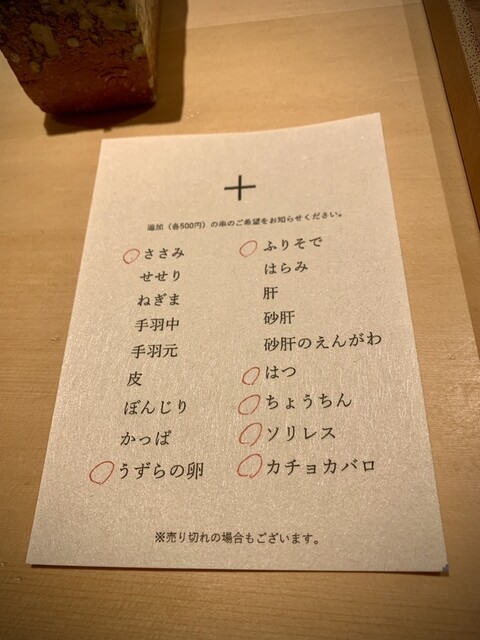 ＋
追加（各500円）の串のご希望をお知らせください。
ささみ
せせり
ねぎま
手羽中
手羽元
皮
ぼんじり
かっぱ
うずらの卵
ふりそで
はらみ
肝
砂肝
砂肝のえんがわ
はつ
ちょうちん
ソリレス
カチョカバロ
※売り切れの場合もございます。